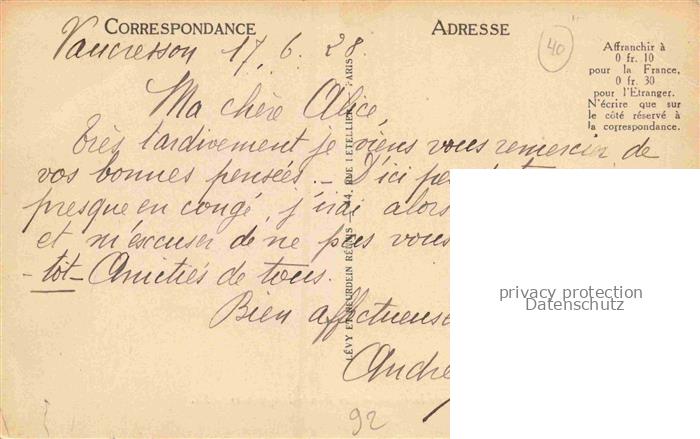 CORRESPONDANCE
ADRESSE
Vaucresson 17, 6. 28.
40
Affranchir à
0 fr. 10
pour la France,
0 fr. 30
pour l'Etranger.
N'écrire que sur
le côté réservé à
la correspondance.
Ma chère Alice,
très tardivement je viens vous remercier de
vos bonnes pensées. - D'ici
presque en congé, j'irai alors
et m'excuser de ne pas vous
-tôt- Amitiés de tous.
Bien affectueuse
André
LÉVY ET NEURDEIN RÉUNIS - 44, RUE LETELLIER, PARIS
92
privacy protection
Datenschutz